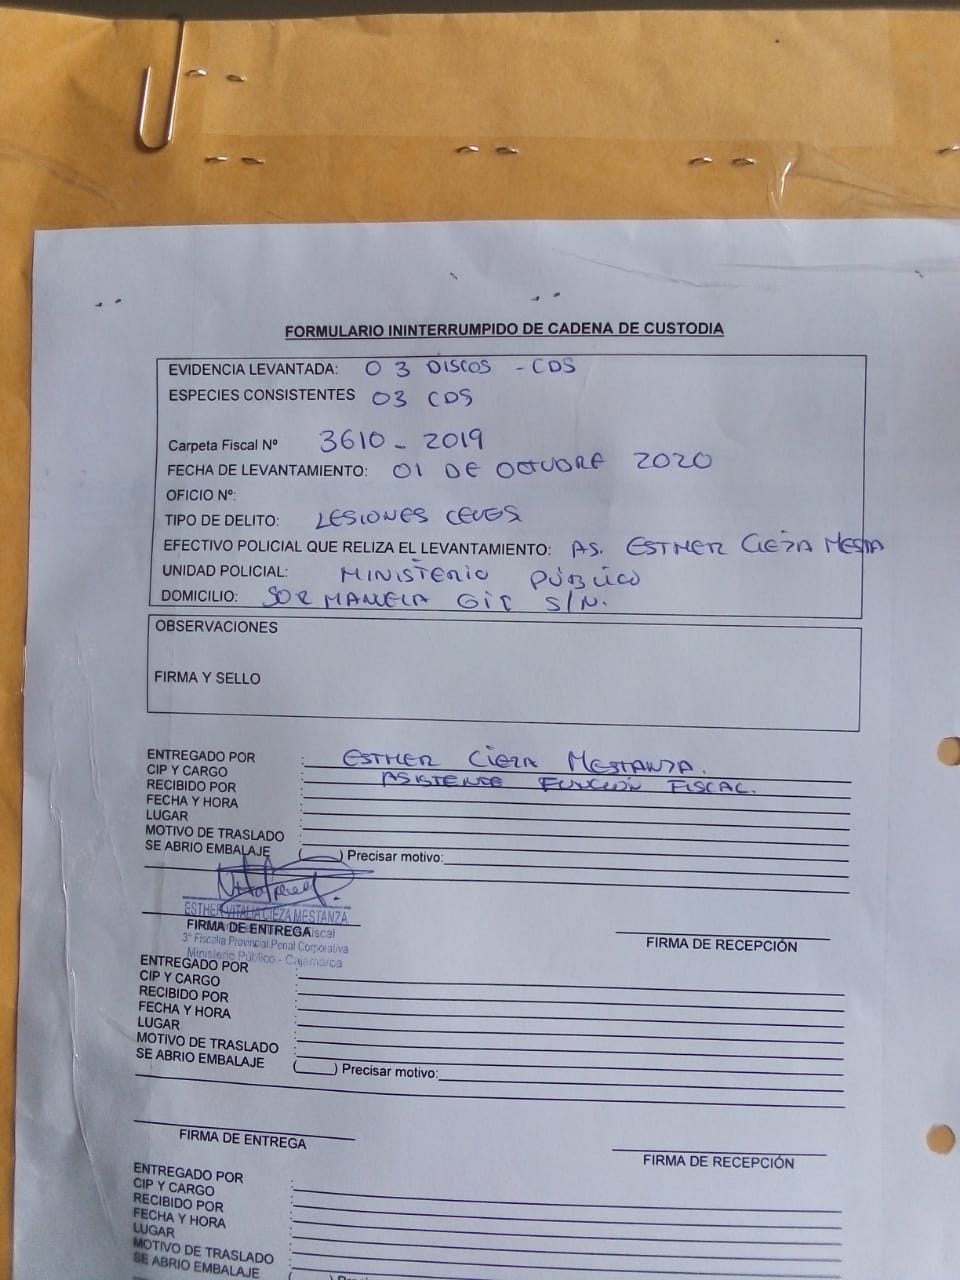 FORMULARIO ININTERRUMPIDO DE CADENA DE CUSTODIA
EVIDENCIA LEVANTADA: 03 DISCOS - CDS
ESPECIES CONSISTENTES 03 CDS
Carpeta Fiscal Nº 3610 - 2019
FECHA DE LEVANTAMIENTO: 01 DE OCTUBRE 2020
OFICIO Nº:
TIPO DE DELITO: LESIONES LEVES
EFECTIVO POLICIAL QUE RELIZA EL LEVANTAMIENTO: AS. ESTHER CIEZA MESTA
UNIDAD POLICIAL: MINISTERIO PÚBLICO
DOMICILIO: SOR MANUELA GIL S/N.
OBSERVACIONES
FIRMA Y SELLO
ENTREGADO POR : ESTHER CIEZA MESTANZA.
CIP Y CARGO : ASISTENTE FUNCIÓN FISCAL.
RECIBIDO POR :
FECHA Y HORA :
LUGAR :
MOTIVO DE TRASLADO :
SE ABRIO EMBALAJE (____) Precisar motivo:
ESTHER VITALIA CIEZA MESTANZA
FIRMA DE ENTREGA Fiscal
3ª Fiscalia Provincial Penal Corporativa
Ministerio Público - Cajamarca
FIRMA DE RECEPCIÓN
ENTREGADO POR :
CIP Y CARGO :
RECIBIDO POR :
FECHA Y HORA :
LUGAR :
MOTIVO DE TRASLADO :
SE ABRIO EMBALAJE (____) Precisar motivo:
FIRMA DE ENTREGA
FIRMA DE RECEPCIÓN
ENTREGADO POR :
CIP Y CARGO :
RECIBIDO POR :
FECHA Y HORA :
LUGAR :
MOTIVO DE TRASLADO :
SE ABRIO EMBALAJE